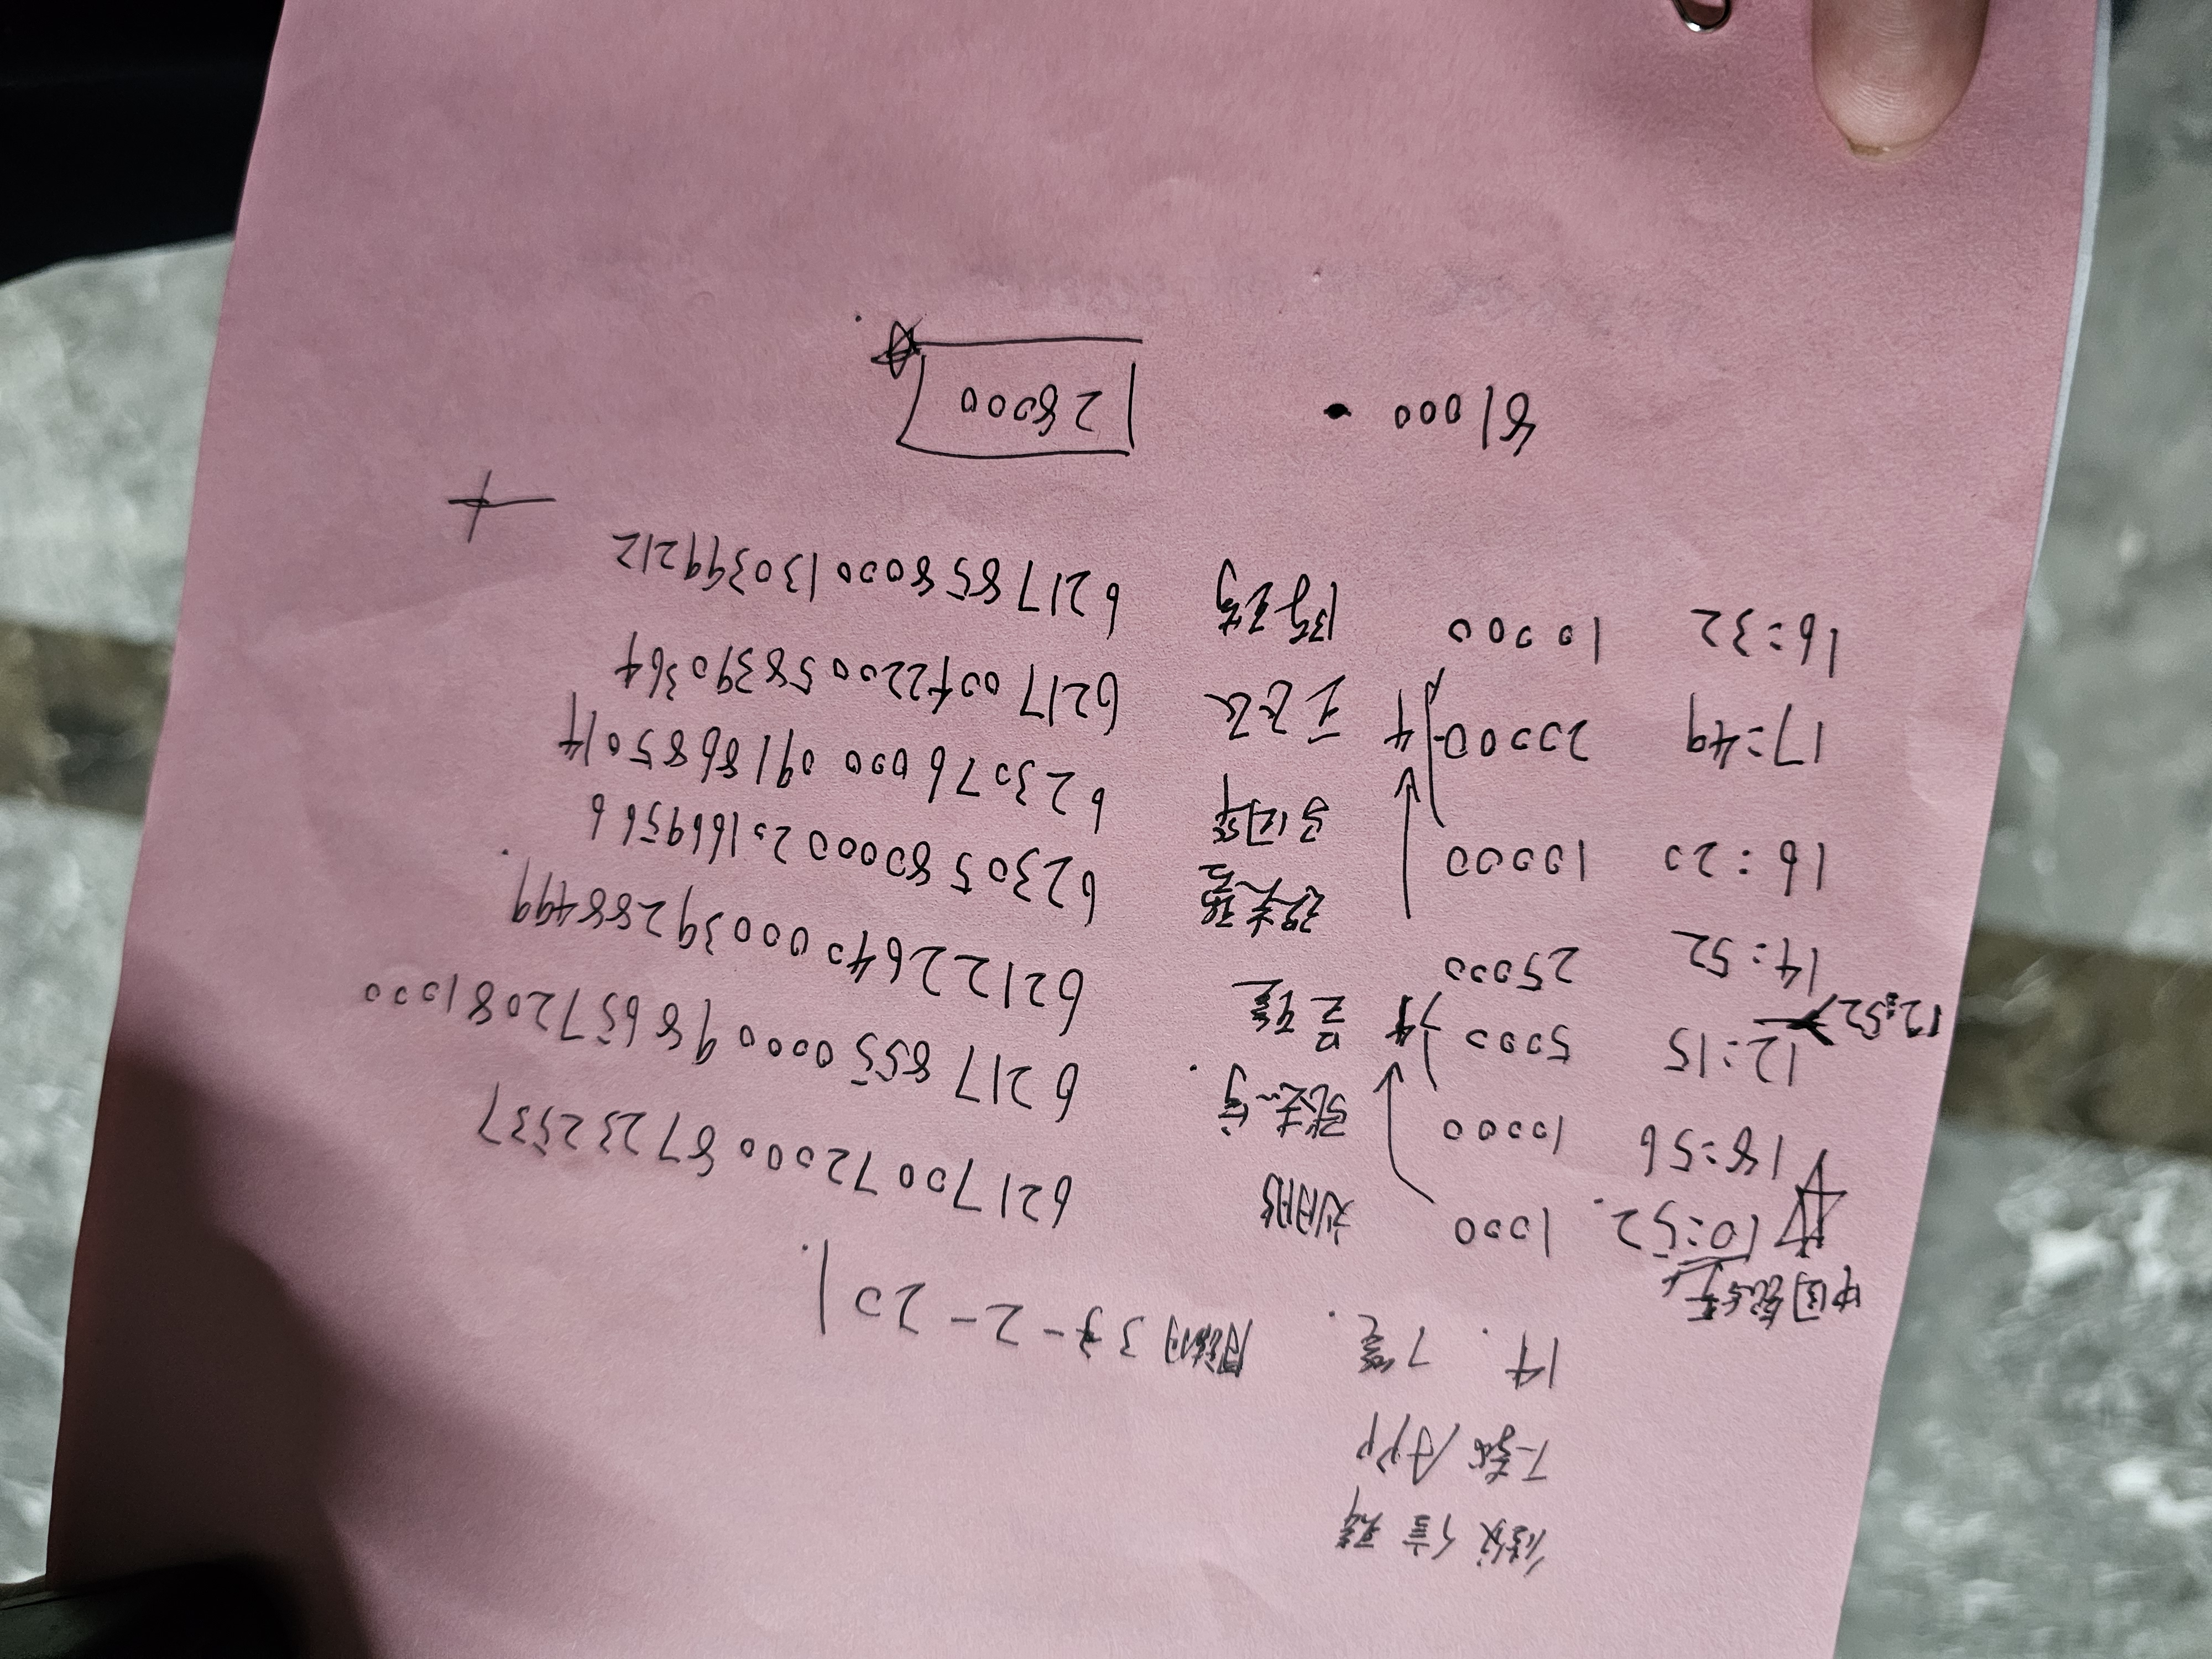 微信群
下载APP
14.7笔.
33-2-201.
中国银行
10:52. 1000 刘朋 6217007200087232537
18:56 10000 张志宇. 6217855000098657208 1000
12:15 5000 4 吴 6212264000039288499.
12:52 14:52 25000
16:20 10000 6230580000201669566
马闰苹 6230760000918685014
17:49 20000 4 王飞飞 6217004220058390364
16:32 10000 陈琦 6217858000130399212
81000 28000